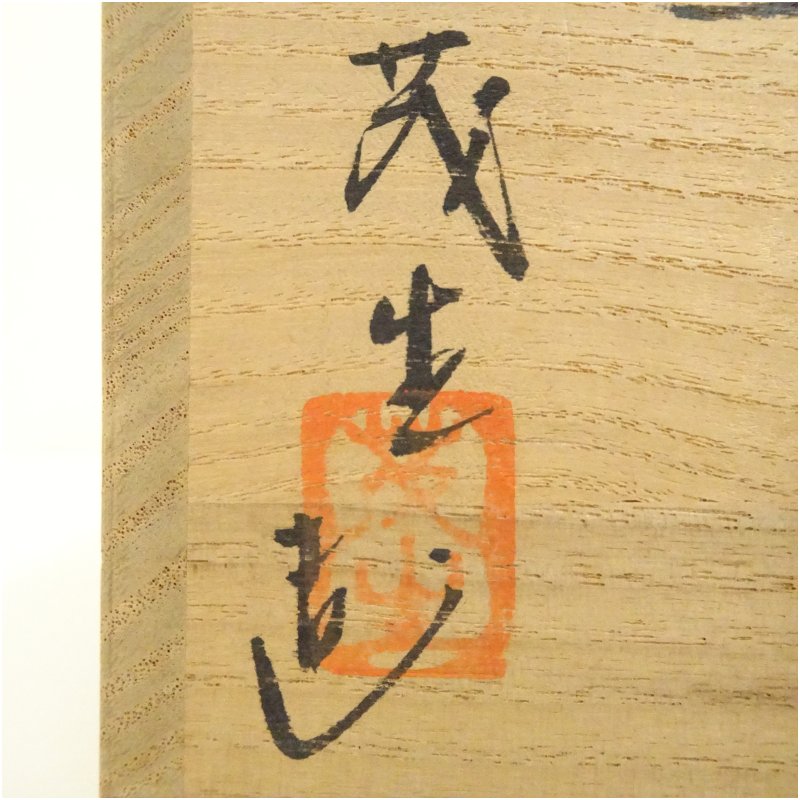 茂生造